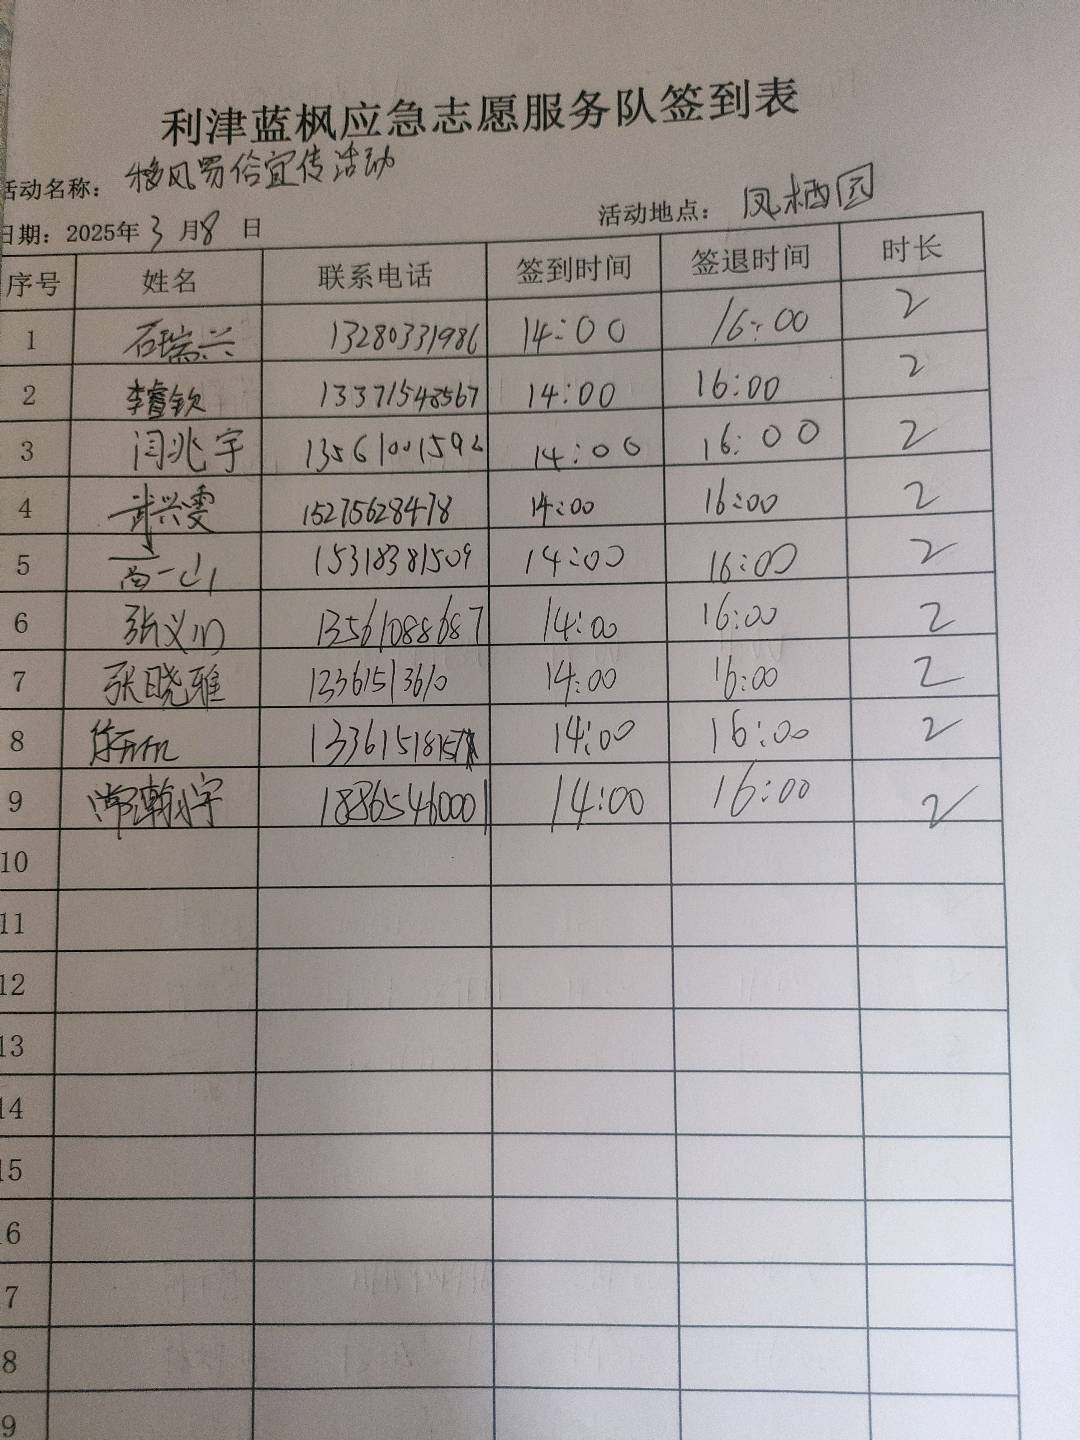 利津蓝枫应急志愿服务队签到表
活动名称： 移风易俗宣传活动
日期：2025年3月8日 活动地点：凤栖园
序号 姓名 联系电话 签到时间 签退时间 时长
1 石瑞兴 13280331986 14:00 16:00 2
2 李睿钦 13371548567 14:00 16:00 2
3 闫兆宇 13561001592 14:00 16:00 2
4 武兴雯 15275628478 14:00 16:00 2
5 高一山 15318381509 14:00 16:00 2
6 张义川 13561088687 14:00 16:00 2
7 张晓雅 13361513610 14:00 16:00 2
8 14:00 16:00 2
9 常瀚宇 18865460001 14:00 16:00 2
10
11
12
13
14
15
6
7
8
9